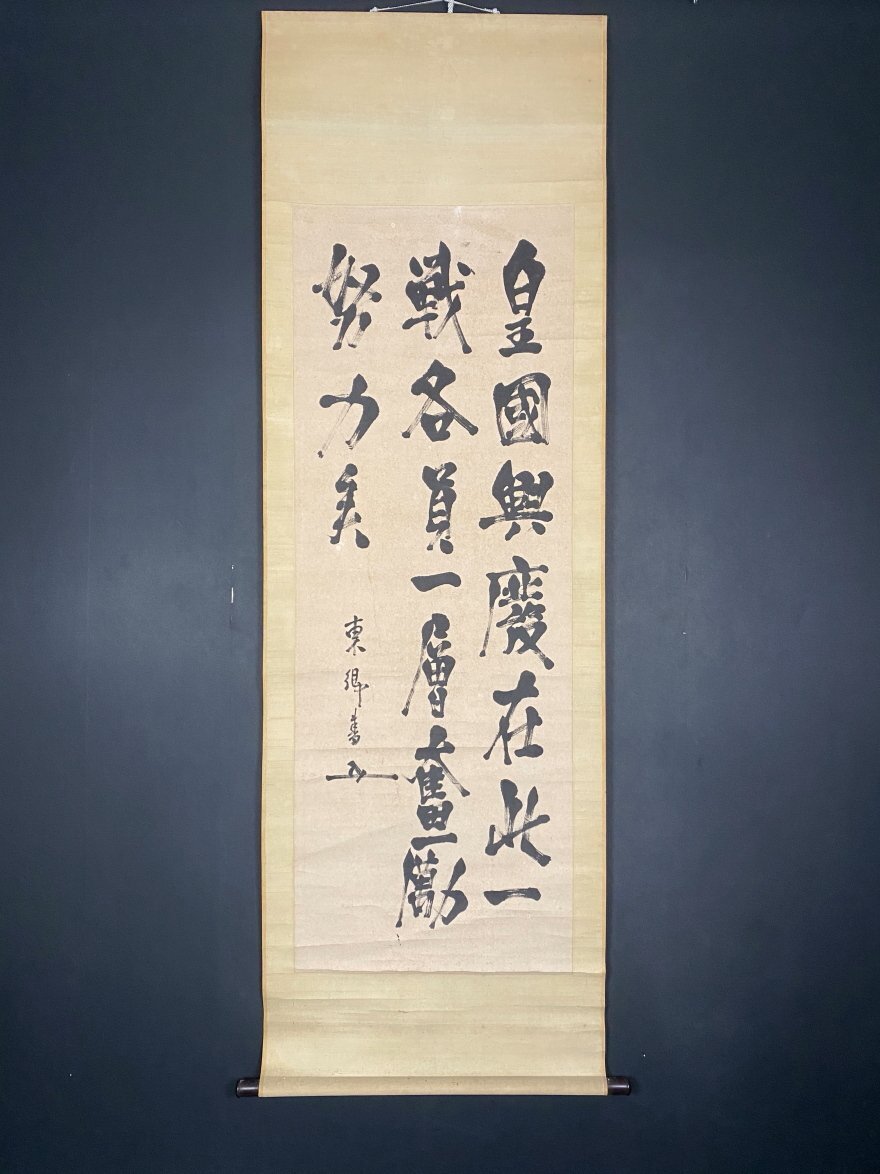 皇國興廢在此一
戦各員一層奮励
努力矣
東郷書